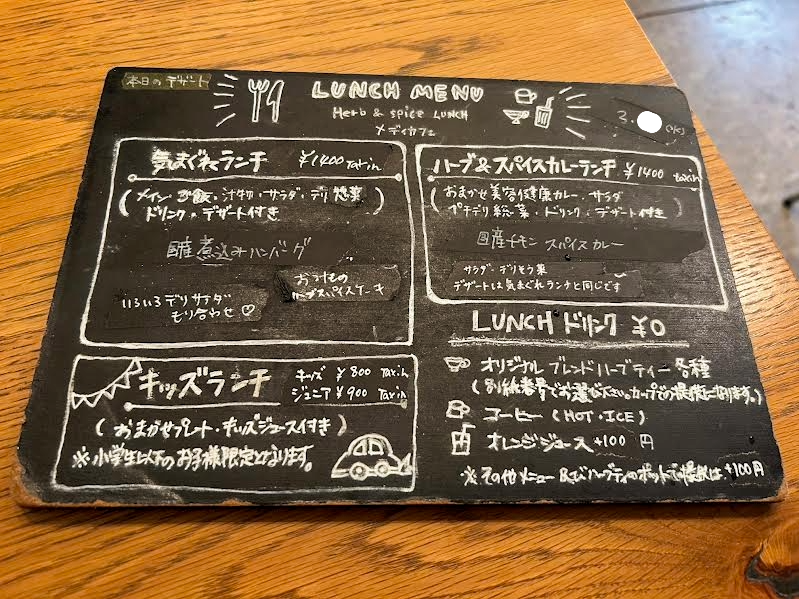 本日の デザート
LUNCH MENU
Herb & spice LUNCH
メディカフェ
3.
気まぐれランチ ¥1400 Tax in
(メイン・ご飯・汁物・サラダ・デリ惣菜
ドリンク・デザート付き)
国産煮込みハンバーグ
いろいろデリサラダ
もり合わせ♡
おうちの
ハーブスパイスケーキ
ハーブ&スパイスカレーランチ ¥1400 Tax in
(おまかせ美容健康カレー・サラダ
プチデリ総菜・ドリンク・デザート付き)
国産チキン スパイスカレー
サラダ・デリそう菜
デザートは気まぐれランチと同じです
キッズランチ
キッズ ¥800 Tax in
ジュニア ¥900 Tax in
(おまかせプレート・キッズジュース付き)
※小学生以下のお子様限定となります。
LUNCH ドリンク ¥0
オリジナル ブレンド ハーブティー 各種
(別紙番号でお選びください。カップでの提供になります。)
コーヒー (HOT・ICE)
オレンジジュース +100 円
※その他メニュー &ハーブティのポットでの提供は、+100円